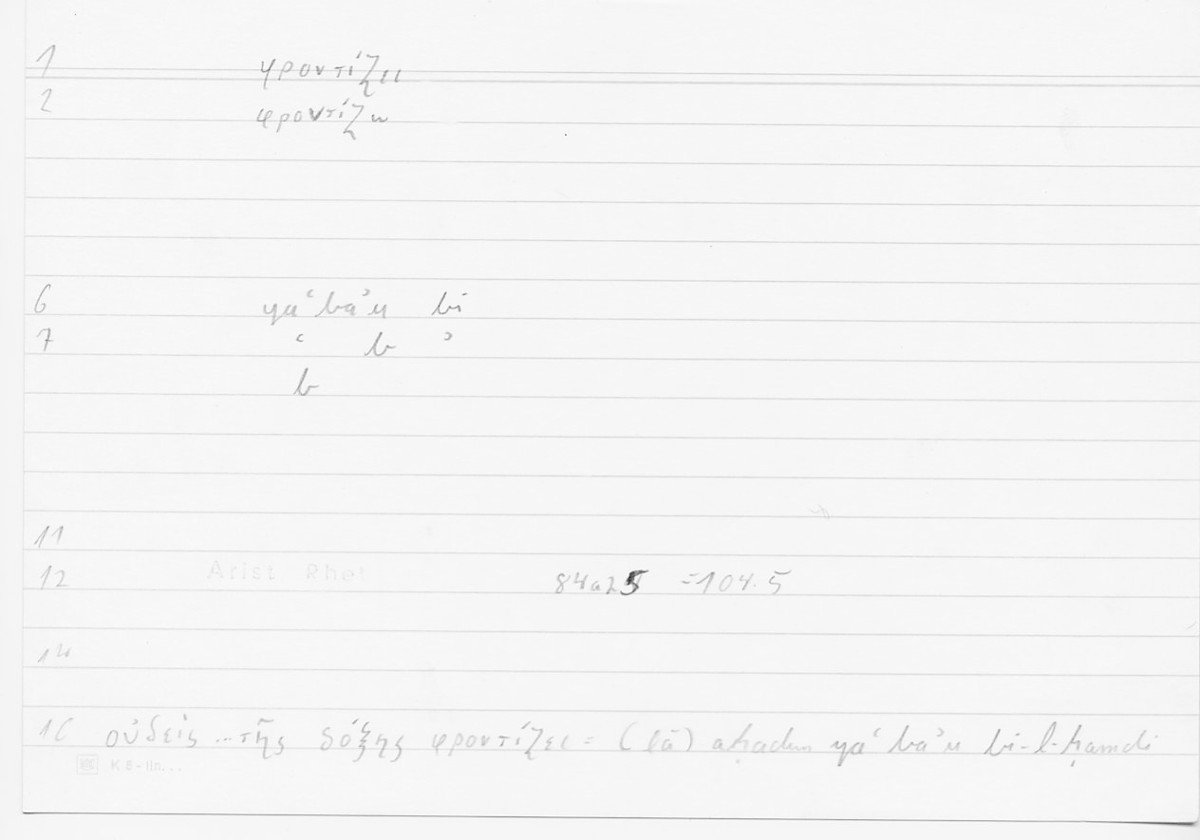 1 φροντίζει
2 φροντίζω
6 yaʿbaʾu bi
7 ʿ b ʾ
b
11
12 Arist Rhet 84a25 =104.5
14
16 οὐδεὶς ... τῆς δόξης φροντίζει = (lā) aḥadun yaʿbaʾu bi-l-ḥamdi
K 8 - lin...